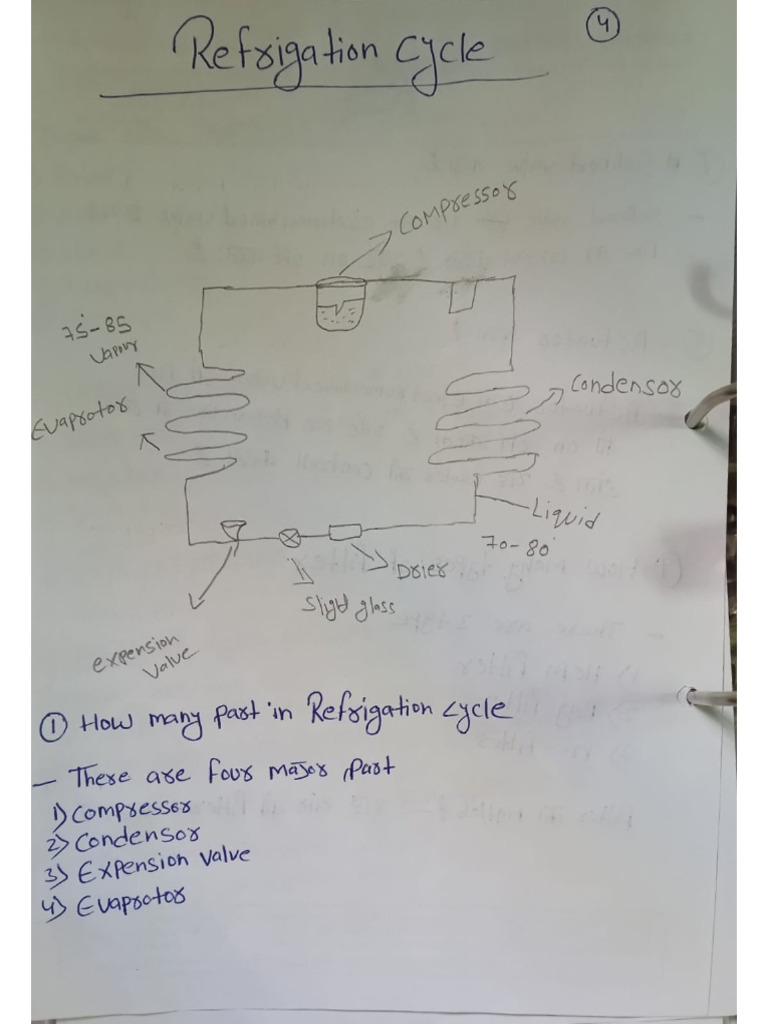 Refrigation cycle
4
compressor
75-85
vapour
Evaprotor
condensor
Liquid
70-80
Drier
glass
expension
valve
① How many part in Refrigation cycle
- There are four major part
1) compressor
2) condensor
3) Expension valve
4) Evaprotor